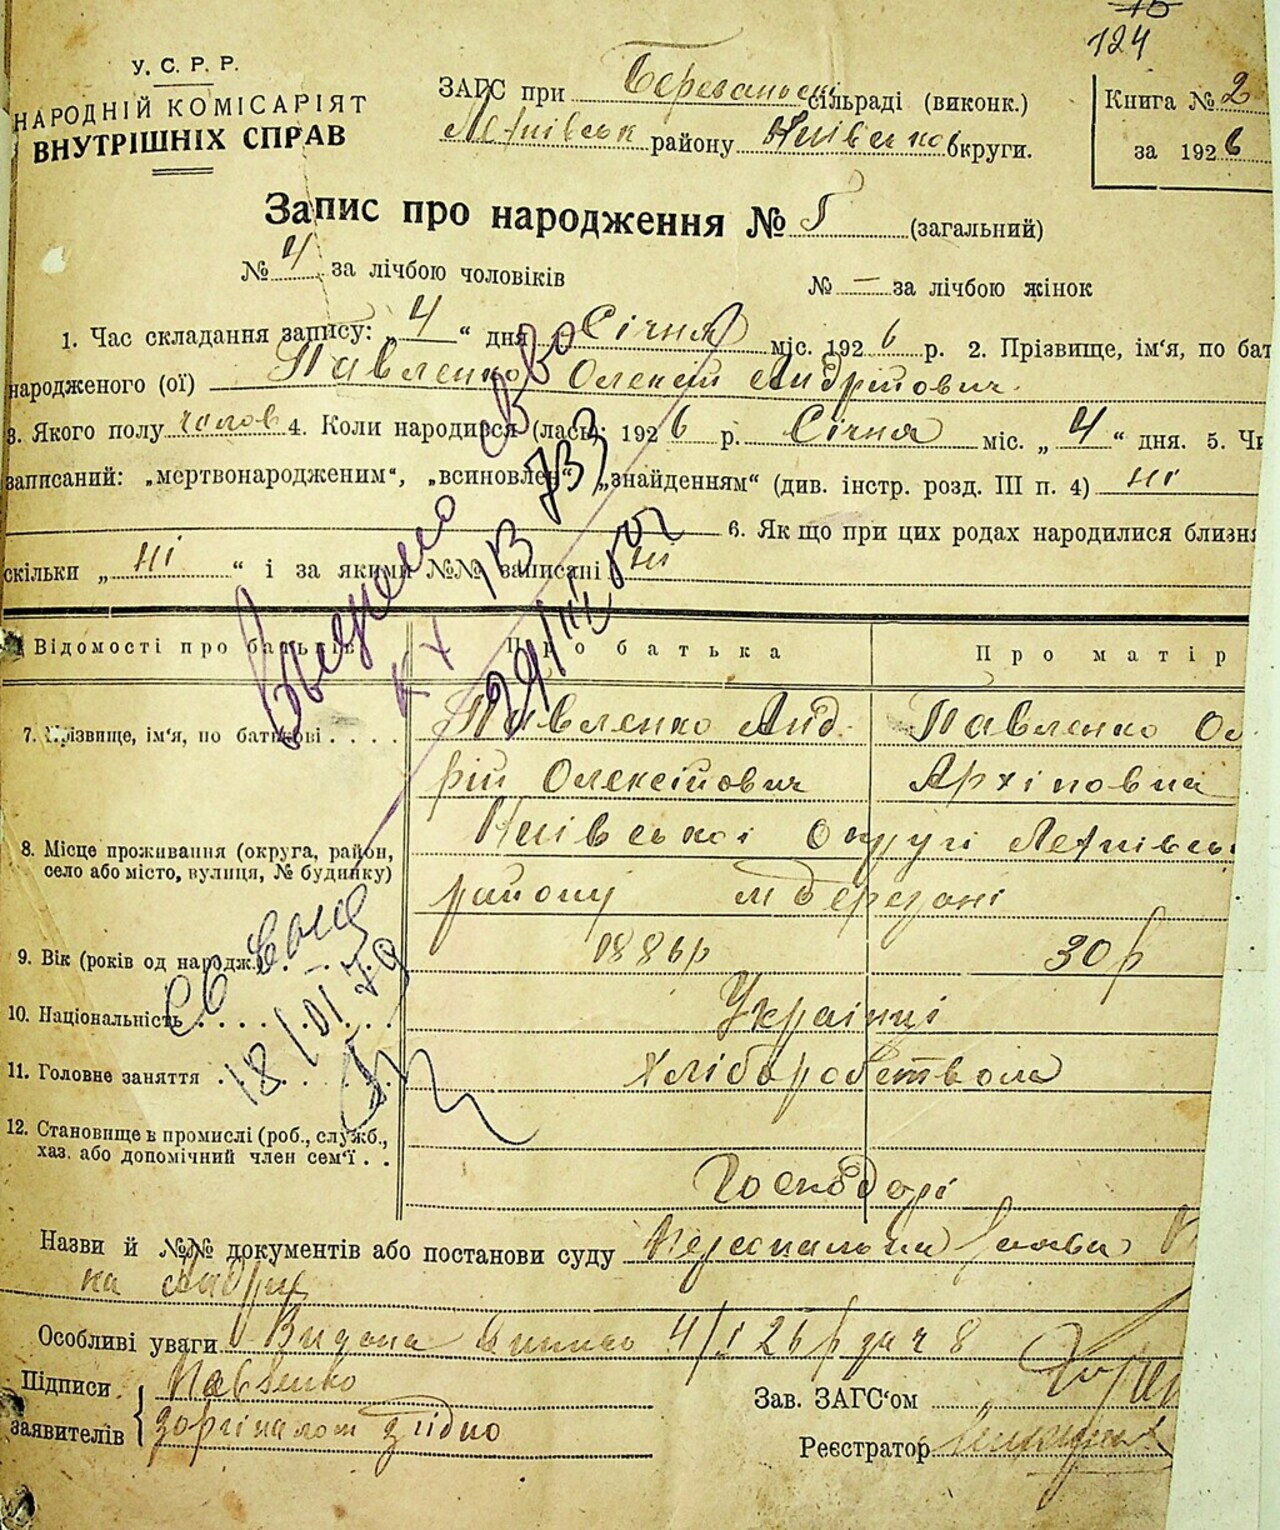 124
У. С. Р. Р.
НАРОДНІЙ КОМІСАРІЯТ
ВНУТРІШНІХ СПРАВ
ЗАГС при Березанській сільраді (виконк.)
району Київсько округи.
Книга № 2
за 1926
Запис про народження № 5 (загальний)
№ 4 за лічбою чоловіків
№ — за лічбою жінок
1. Час складання запису: „4“ дня Січня міс. 1926 р. 2. Прізвище, ім'я, по бат
народженого (ої) Павленко Олексій Андрійович.
3. Якого полу чолов 4. Коли народився (лась): 1926 р. Січня міс. „4“ дня. 5. Чи
записаний: „мертвонародженим“, „всиновлен“ „знайденням“ (див. інстр. розд. III п. 4) ні
6. Як що при цих родах народилися близня
скільки „ні“ і за якими №№ записані ні
Відомості про батьків
Про батька
Про матір
7. Прізвище, ім'я, по батькові
Павленко Анд
Павленко Ол
рій Олексійович
Архіповна
8. Місце проживання (округа, район,
село або місто, вулиця, № будинку)
Київської округи
району м Березані
9. Вік (років од народж.)
1886р
30 р
10. Національність
Українці
11. Головне заняття
Хліборобством
12. Становище в промислі (роб., служб.,
хаз. або допомічний член сем'ї
Господарі
Назви й №№ документів або постанови суду Персональна заява
Особливі уваги Видана 4/І 26 р за ч 8
Підписи
заявителів
Павленко
з оригіналом згідно
Зав. ЗАГС'ом
Реєстратор
18/01 79